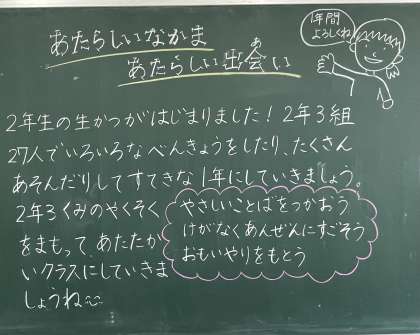 あたらしいなかま
あたらしい出会い
あ
1年間
よろしくね
2年生の生かつがはじまりました！2年3組
27人でいろいろなべんきょうをしたり、たくさん
あそんだりしてすてきな1年にしていきましょう。
2年3くみのやくそく
をまもって、あたたか
いクラスにしていきま
しょうね
やさしいことばをつかおう
けがなくあんぜんにすごそう
おもいやりをもとう